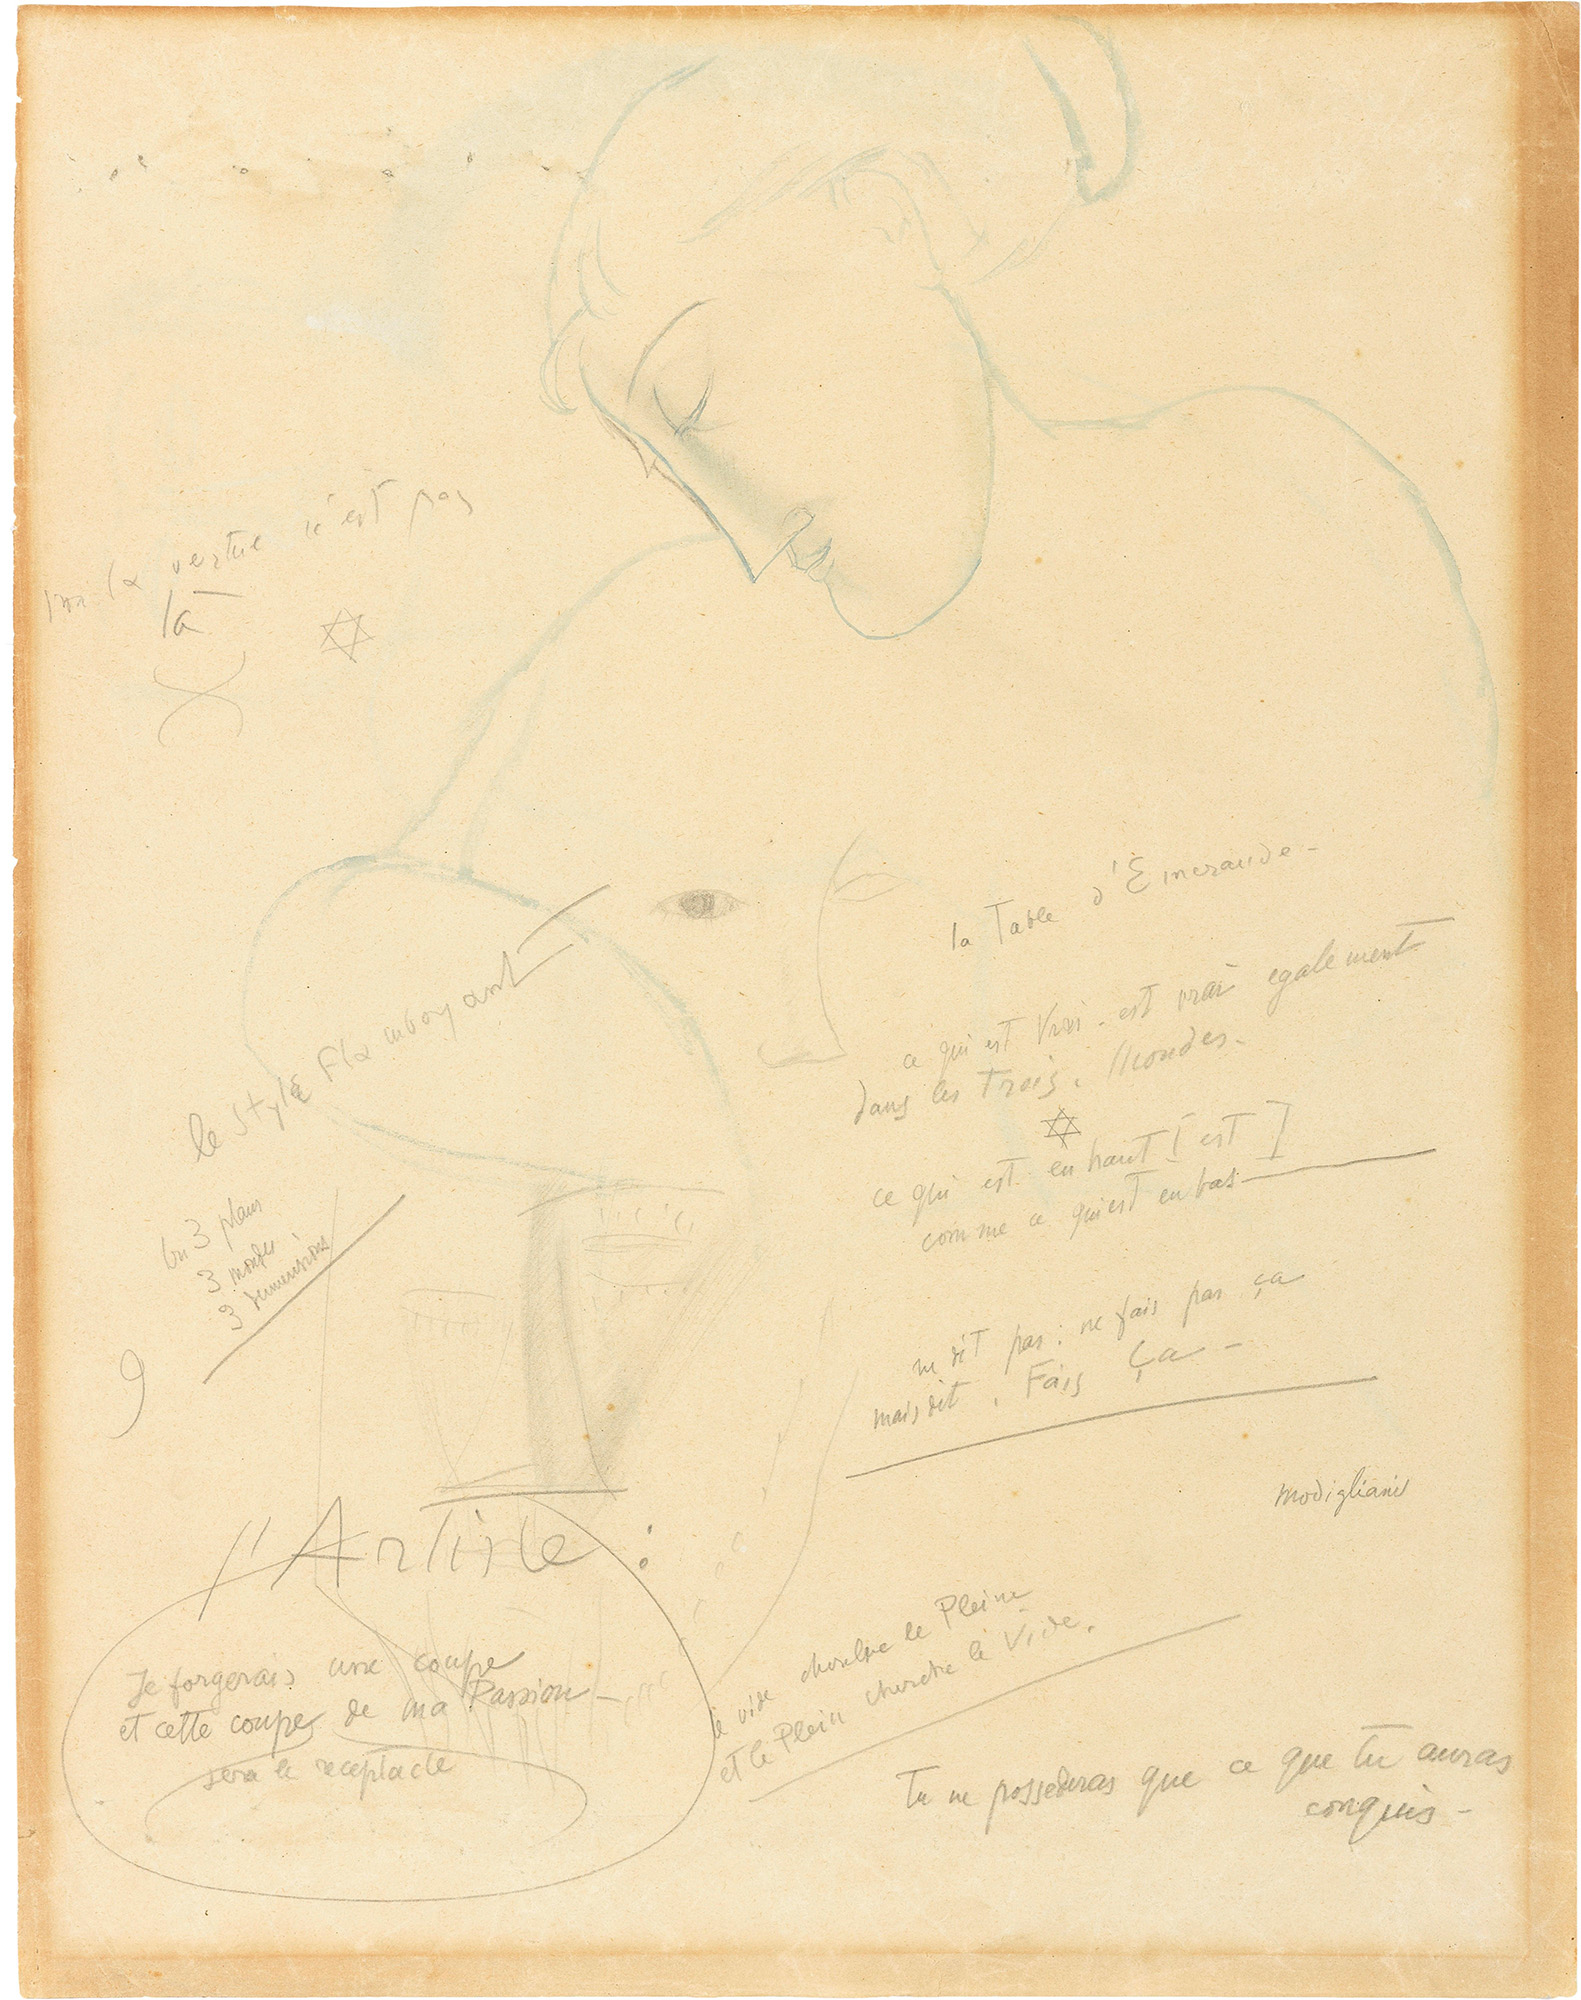 la vertue n'est pas
là
la Table d'Emeraude -
ce qui est Vrai - est vrai egalement
dans les Trois . Mondes -
ce qui est en haut [ est ]
comme ce qui est en bas
le Style Flamboyant
3 plans
3 mondes
3 dimensions
9
ne dit pas : ne fais pas ça
mais dit . Fais Ça -
modigliani
l'Artiste :
Je forgerais une coupe
et cette coupe de ma Passion -
sera le receptacle
le vide cherche le Plein
et le Plein cherche le Vide .
Tu ne possederas que ce que tu auras
conquis -